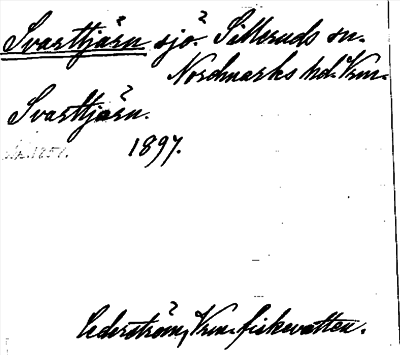 Svarttjärn sjö? Silleruds sn.
Nordmarks hd. Vrm.
Svarttjärn.
1897.
Cederström, Vrm. fiskevatten.